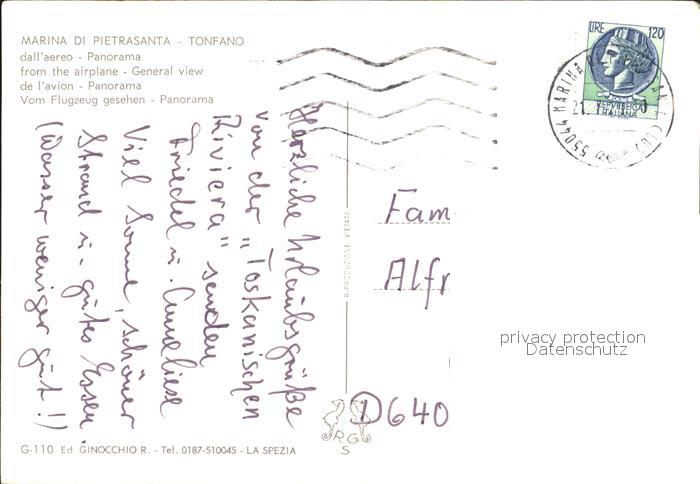 MARINA DI PIETRASANTA - TONFANO
dall'aereo - Panorama
from the airplane - General view
de l'avion - Panorama
Vom Flugzeug gesehen - Panorama
LIRE 120
REPUBBLICA
ITALIANA
55044 MARINA
Herzliche Urlaubsgrüße
von der "Toskanischen
Riviera" senden
Friedel u. Anneliese
Viel Sonne, schöner
Strand u. gutes Essen.
(Wasser weniger gut!!)
RIPRODUZIONE VIETATA
Fam
Alfr
D640
privacy protection
Datenschutz
RG
S
G-110 Ed. GINOCCHIO R. - Tel. 0187-510045 - LA SPEZIA